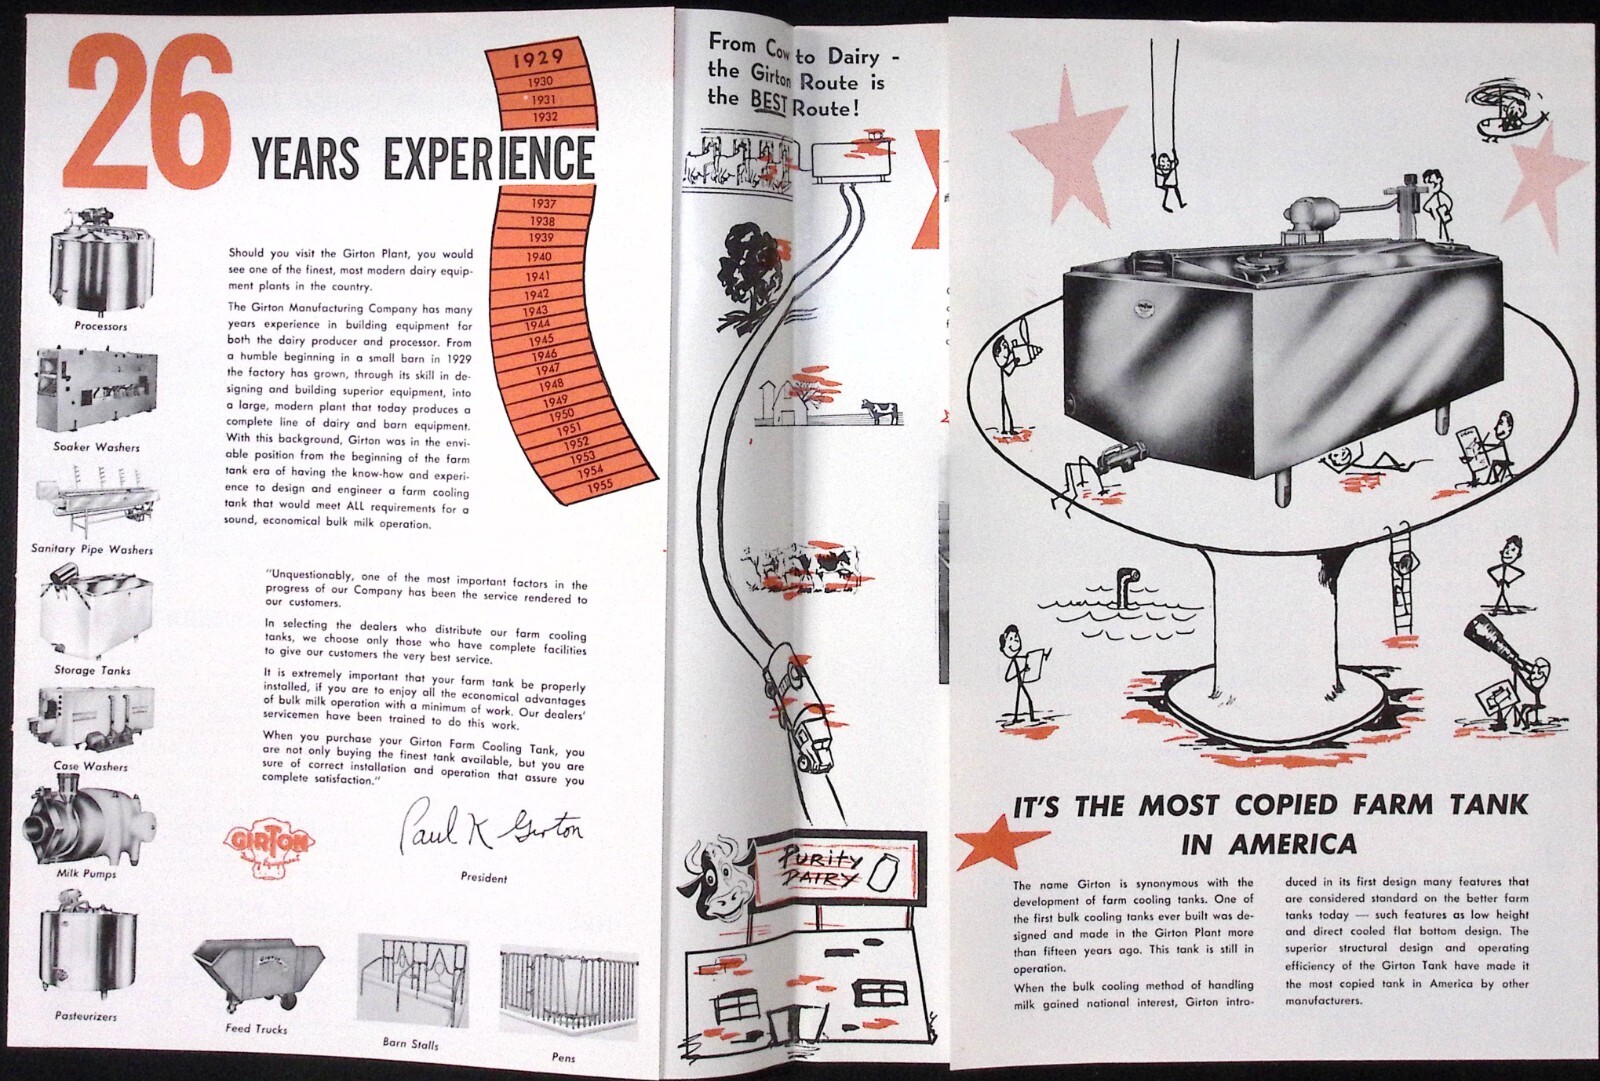 26
YEARS EXPERIENCE
1929
1930
1931
1932
1937
1938
1939
1940
1941
1942
1943
1944
1945
1946
1947
1948
1949
1950
1951
1952
1953
1954
1955
Processors
Soaker Washers
Sanitary Pipe Washers
Storage Tanks
Case Washers
Milk Pumps
Pasteurizers
Feed Trucks
Barn Stalls
Pens
Should you visit the Girton Plant, you would
see one of the finest, most modern dairy equip-
ment plants in the country.
The Girton Manufacturing Company has many
years experience in building equipment for
both the dairy producer and processor. From
a humble beginning in a small barn in 1929
the factory has grown, through its skill in de-
signing and building superior equipment, into
a large, modern plant that today produces a
complete line of dairy and barn equipment.
With this background, Girton was in the envi-
able position from the beginning of the farm
tank era of having the know-how and experi-
ence to design and engineer a farm cooling
tank that would meet ALL requirements for a
sound, economical bulk milk operation.
"Unquestionably, one of the most important factors in the
progress of our Company has been the service rendered to
our customers.
In selecting the dealers who distribute our farm cooling
tanks, we choose only those who have complete facilities
to give our customers the very best service.
It is extremely important that your farm tank be properly
installed, if you are to enjoy all the economical advantages
of bulk milk operation with a minimum of work. Our dealers'
servicemen have been trained to do this work.
When you purchase your Girton Farm Cooling Tank, you
are not only buying the finest tank available, but you are
sure of correct installation and operation that assure you
complete satisfaction."
GIRTON
Paul K Girton
President
From Cow to Dairy -
the Girton Route is
the BEST Route!
PURITY
DAIRY
IT'S THE MOST COPIED FARM TANK
IN AMERICA
The name Girton is synonymous with the
development of farm cooling tanks. One of
the first bulk cooling tanks ever built was de-
signed and made in the Girton Plant more
than fifteen years ago. This tank is still in
operation.
When the bulk cooling method of handling
milk gained national interest, Girton intro-
duced in its first design many features that
are considered standard on the better farm
tanks today — such features as low height
and direct cooled flat bottom design. The
superior structural design and operating
efficiency of the Girton Tank have made it
the most copied tank in America by other
manufacturers.